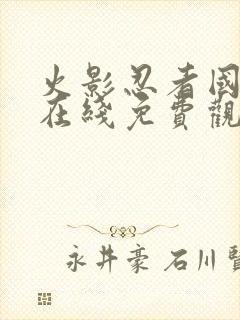 火影忍者国
在綫免費觀
永井豪 石川賢